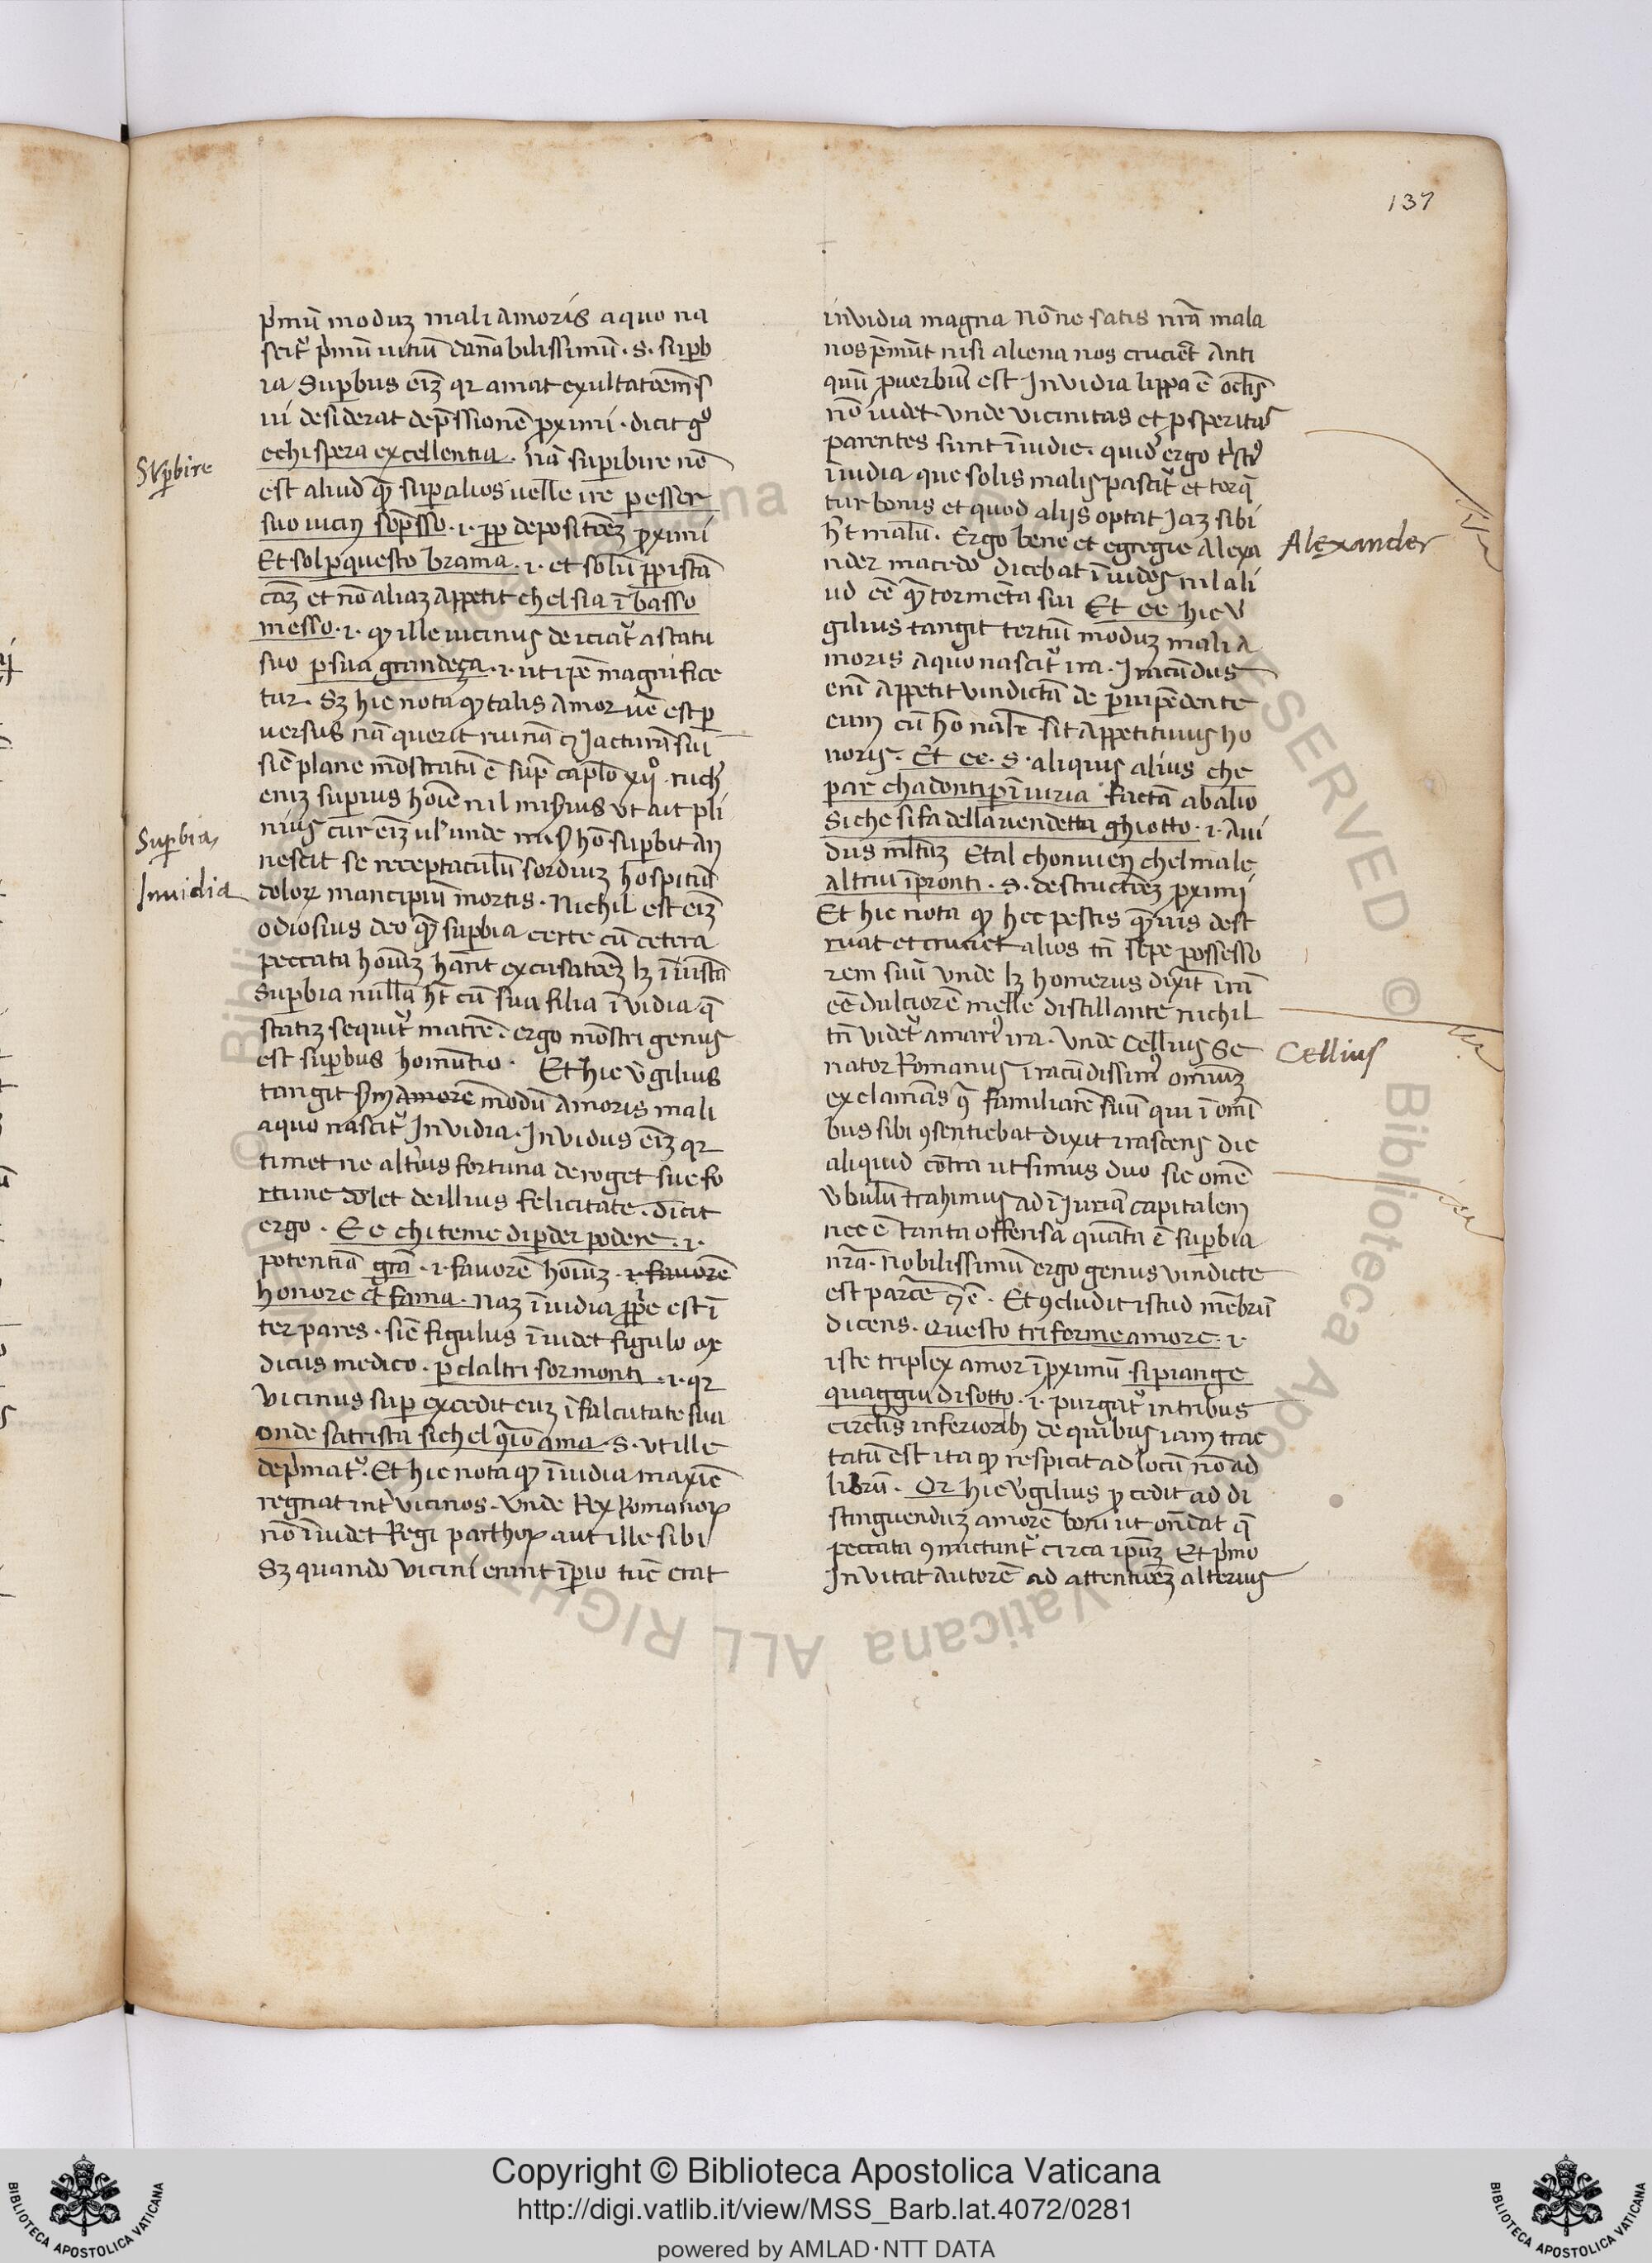 137
p̄mū moduz mali amoris a quo na
scit᷑ p̄mū uitiū dānabilissimū · s · suꝑb
ia Suꝑbus eīz qr amat exultatōem s
ui desiderat dep̄ssionē ꝓximi · dicit gͦ
echi spera excellentia · nā suꝑbire nō
est aliud qꝫ suꝑ alios uelle ire ꝑ esser
suo uicin sop̄sso · i · ꝓp depositōez ꝓximi
Et sol ꝑ questo brama · i · et solū ꝓp istā
cāz et nō aliaz appetit chel sia ī basso
messo · i · ꝙ ille uicinus deiciat᷑ a statu
suo ꝑ sua grandeça · i · ut ip̄e magnifice
tur · Sz hic nota ꝙ talis amor uē est ꝑ
uersus nā querit ruinā ⁊ Jacturā sui
sic̄ plane mōstratū ē sup̄ cap̄lo xijͦ · nich̄
enīz suꝑius hoīe nil miserius ut ait pli
nius cur eīz ul᷑ unde mis᷑ hō suꝑbit an
nescit se receptaculū sordiuz hospitiū
doloꝝ mancipiū mortis · Nichil est eīz
odiosius deo qꝫ suꝑbia certe cū cetera
peccata hoīuz hānt excusatōez lz īiustā
Suꝑbia nullā ht̄ cū sua filia īvidia q̄
statiz sequit᷑ matrē · ergo mōstri genus
est suꝑbus homūtio · Et hic v᷑gilius
tangit ẜm amorē modū amoris mali
a quo nascit᷑ Invidia · Invidus eīz qr
timet ne alt᷑ius fortuna deroget sue fo
rtune dolet de illius felicitate · dicit
ergo · Ee chi teme di ꝑder podere · i ·
potentiā grā · i · fauorē hoīuz · i · fauorē
honore et fama · Naz īuidia ꝓp̄e est ī
ter pares · sic̄ figulus īuidet figulo me
dicus medico · ꝑ chaltri sormonti · i · qr
vicinus suꝑ excedit euz ī falcutate sua
onde satrista sichel ꝯ̄io ama · s · ut ille
dep̄mat᷑ · Et hic nota ꝙ īuidia maxīe
regnat int᷑ vicinos · Unde Rex Romanoꝝ
nō īuidet Regi parthoꝝ aut ille sibi
Sz quando vicini erant īꝑio tūc erat
Suꝑbire
Suꝑbia
Inuidia
invidia magna Nōne satis nr̄ā mala
nos p̄mūt nisi aliena nos crucient Anti
quū ꝓuerbiū est Invidia lippa ē oc̄lis
nō iudet · Unde vicinitas et ꝓsperitas
parentes sunt īuidie · quid ergo t᷑sti᷑
īuidia que solis malis pascit᷑ et torq̄
tur bonis et quod alijs optat Jaz sibi
ht̄ malū · Ergo bene et egregie Alexa
nder macedo dicebat īuidos nil ali
ud eē qꝫ tormēta sui Et ee hic v᷑
gilius tangit tertiū moduz mali a
moris a quo nascit᷑ ira · Iracūdus
enī appetit vindictā de ꝑuipēdente
eum cū hō nal̄r sit appetitiuus ho
noris · Et ee · s · aliquis alius che
par chadonti ꝑ īuria factā ab alio
Siche si fa della uendetta ghiotto · i · Aui
dus ml̄tuz Et al chonuien chel male
altrui īpronti · s · destructōez ꝓximi
Et hic nota ꝙ hec pestis qꝫuis dest
ruat et cruciet alios tn̄ sepe possesso
rem suū Unde lz homerus dixit irā
eē dulciorē melle distillante nichil
tn̄ videt᷑ amari᷑ ira · Unde Cellius Se
nator Romanus iracūdissim᷒ omniuz
exclamās ꝯ̄ familiarē suū qui ī omī
bus sibi ꝯsentiebat dixit irascens dic
aliquid cōtra ut simus duo sic omē
v᷑bulū trahimus ad īiuriā capitalem
nec ē tanta offensa quāta ē suꝑbia
nr̄a · Nobilissimū ergo genus vindicte
est parc̄e ⁊ c̄ · Et ꝯcludit istud mēbrū
dicens · Questo triforme amore · i ·
iste triplex amor ī ꝓximū si piange
quaggiu di sotto · i · purgat᷑ in tribus
circl̄is inferiorib de quibus iam trac
tatū est ita ꝙ respicit ad locū nō ad
librū · Or hic v᷑gilius ꝓcedit ad di
stinguenduz amorē boni ut on̄dat q̄
peccata ꝯmictunt᷑ circa ip̄uz Et p̄mo
Invitat autorē ad attentiōez alterius
Alexander
Cellius
Copyright © Biblioteca Apostolica Vaticana
http://digi.vatlib.it/view/MSS_Barb.lat.4072/0281
powered by AMLAD·NTT DATA
BIBLIOTECA APOSTOLICA VATICANA
BIBLIOTECA APOSTOLICA VATICANA